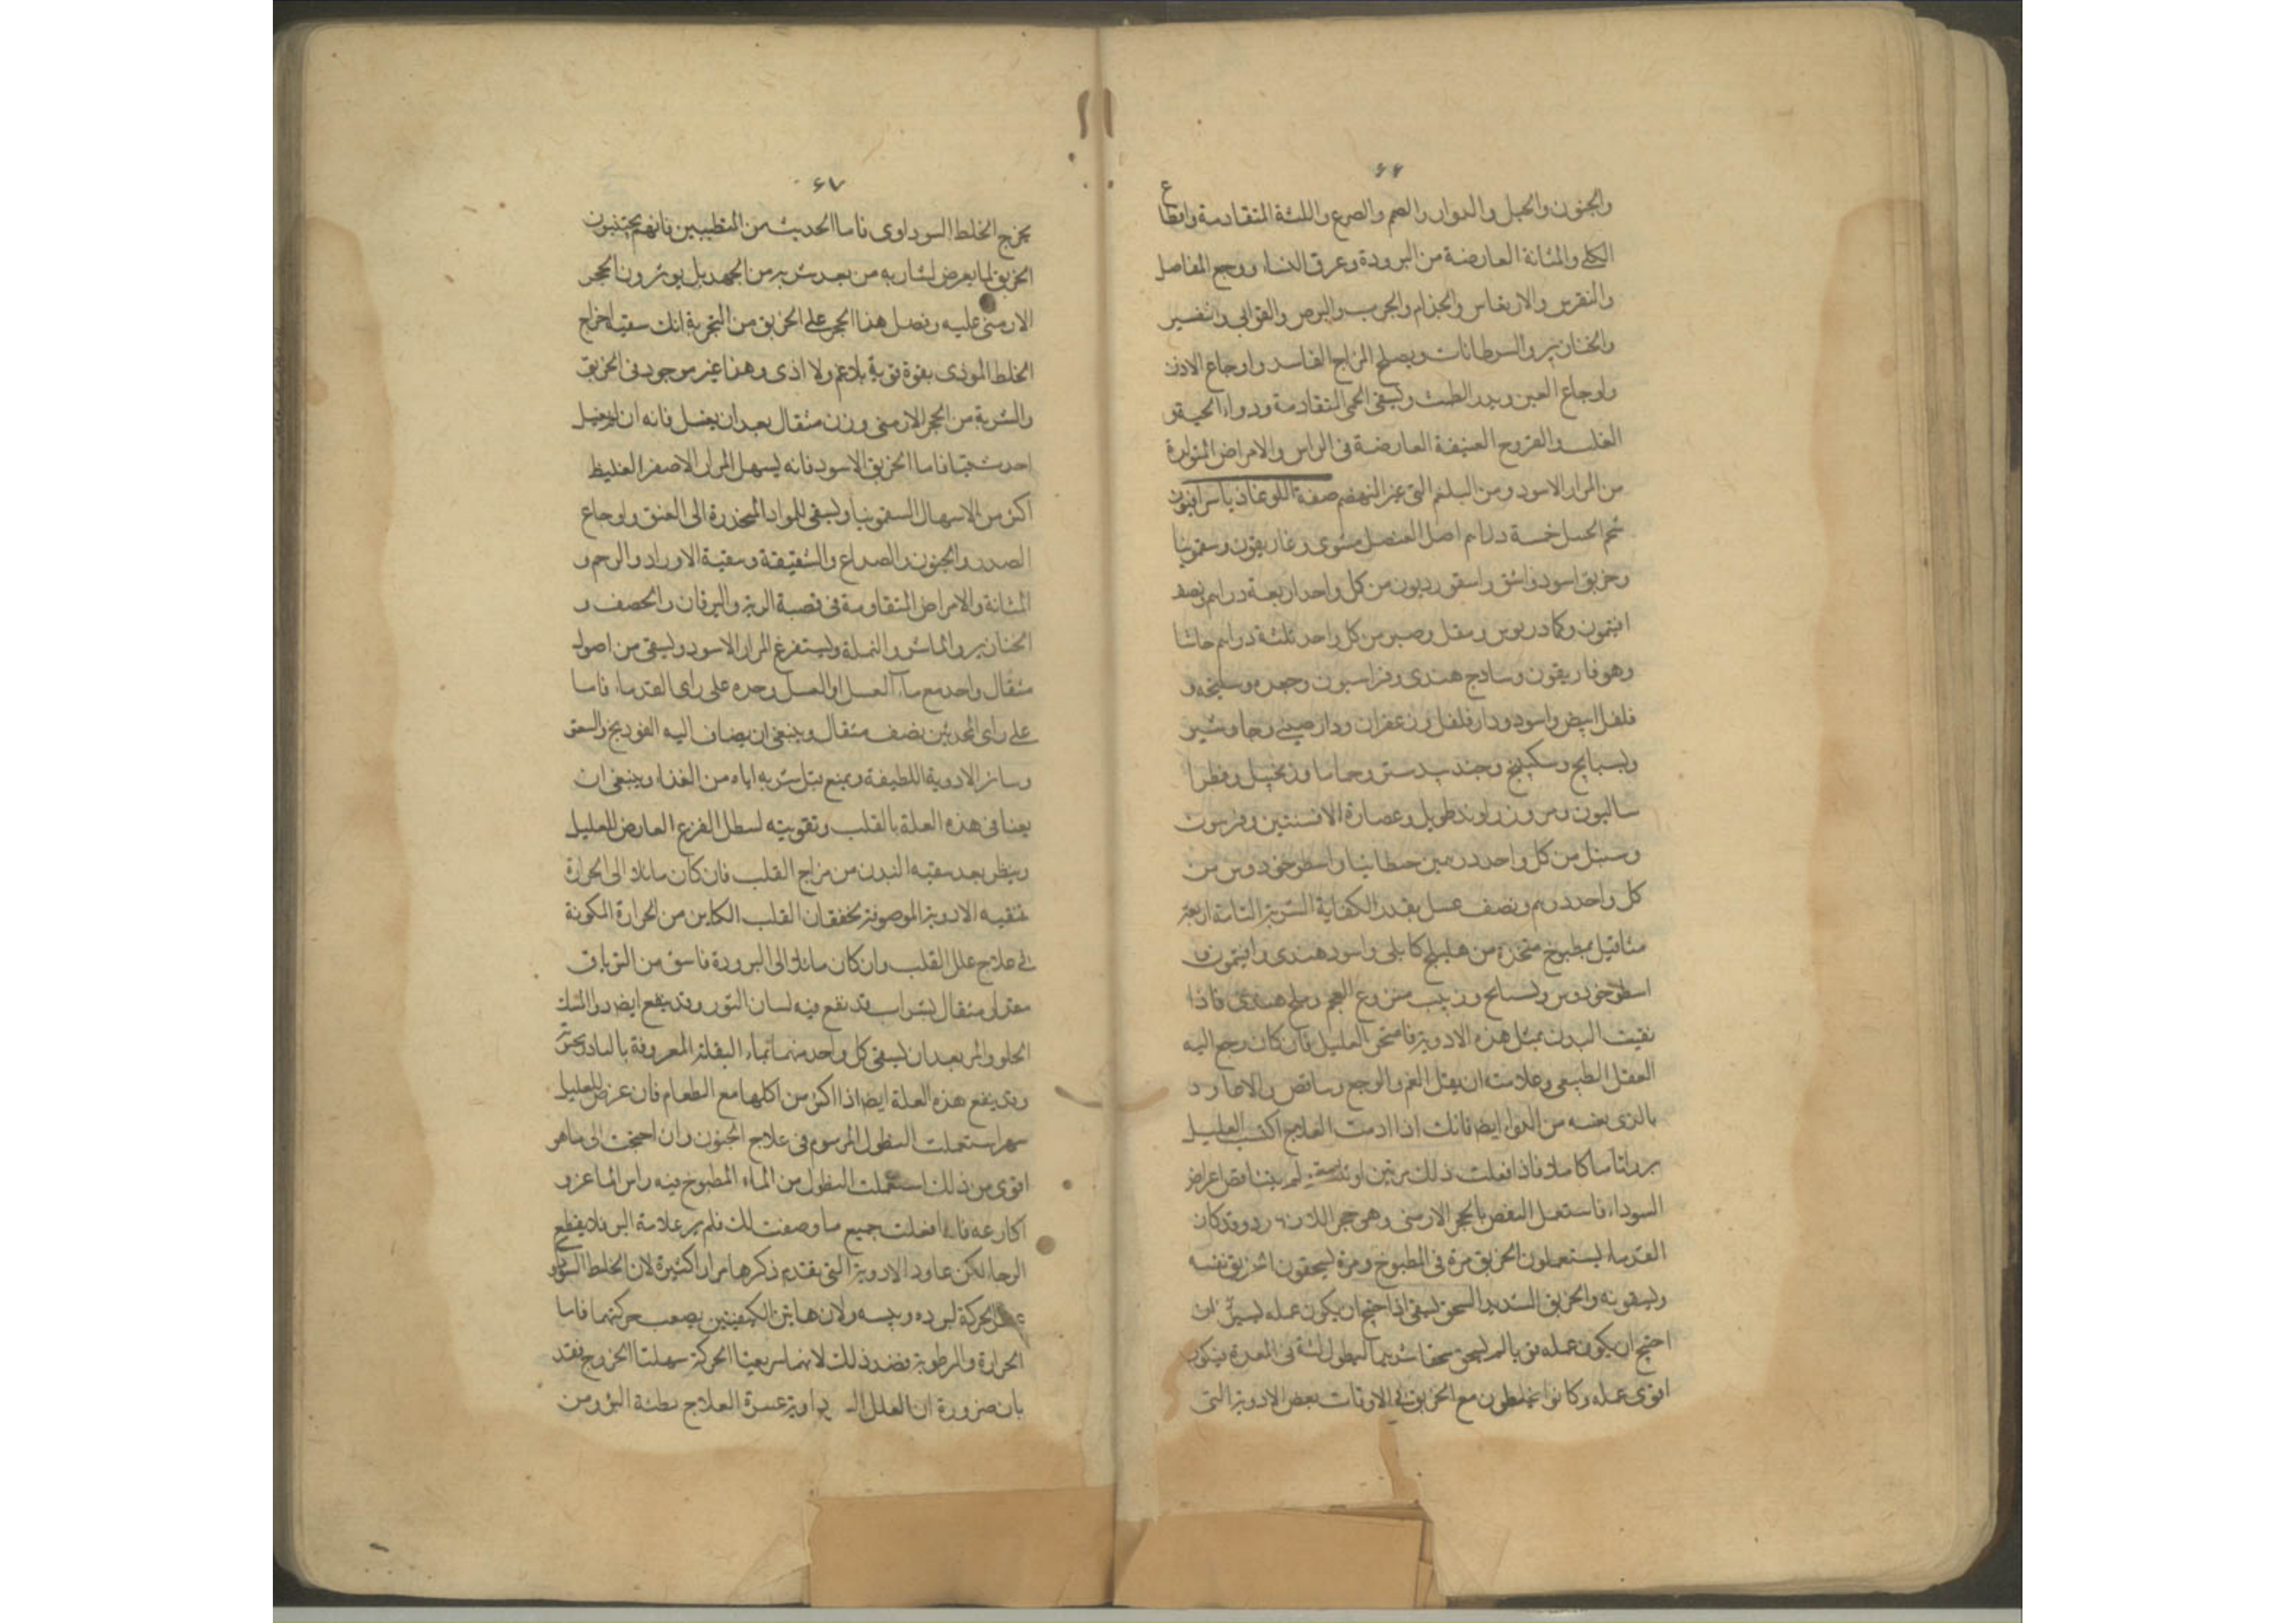 ۶۶
والجنون والخبل والدوار والصمم والصرع واللثة المتقادمة واوجاع
الكلى والمثانة العارضة من البرودة وعرق النساء ووجع المفاصل
والنقرس والارتعاش والجذام والجرب والبرص والقوابي
والخنازير والسرطانات ويصلح المزاج الفاسد واوجاع الاذن
واوجاع العين ويدر الطمث ويسقى الحمى المتقادمة ودواء
والقروح العنيفة العارضة في الراس والامراض المتولدة
من المرار الاسود ومن البلغم التي صفة اللوغاذيا
شحم الحنظل خمسة دراهم اصل العنصل مشوى وغاريقون وسقمونيا
وخربق اسود واشق واسقورديون من كل واحد اربعة دراهم ونصف
افتيمون وكمادريوس ومقل وصبر من كل واحد ثلثة دراهم حاشا
وهوفاريقون وسادج هندى وفراسيون وجعده وسليخه و
فلفل ابيض واسود ودارفلفل وزعفران ودارصينى وجاوشير
وبسبايج وسكبينج وجندبيدستر وحماما وزنجبيل وفطرا
ساليون ومر وزراوند طويل وعصارة الافسنتين وفربيون
وسنبل من كل واحد درهمين جنطانيا واسطوخودوس من
كل واحد درهم ونصف عسل بقدر الكفاية الشربة التامة اربعة
مثاقيل بمطبوخ متخذه من هليلج كابلى واسود هندى وافتيمون و
اسطوخودوس وبسبايج وزبيب منزوع العجم وملح هندى فاذا
نقيت البدن بمثل هذه الادوية فامتحن العليل فان كان رجع اليه
العقل الطبيعى وعلامته ان يقل الغم والوجع
بالذى من الدواء ايضا فانك اذا ادمت العلاج اكتسب العليل
برءا تاما كاملا فاذا فعلت ذلك مرتين او ثلثة لم اعراض
السوداء فاستعمل النفض بالحجر الارمنى وهو حجر اللازورد وقد كان
القدماء يستعملون الخربق مرة في المطبوخ ومرة يسحقون الخربق نفسه
ويسقونه والخربق الشديد السحق يسقى اذا احتيج ان يكون عمله يسيرا ان
احتيج ان يكون عمله قويا لم يسحق سحقا شديدا ليطول لبثه في المعدة فيكون
اقوى عمله وكانوا يخلطون مع الخربق في الاوقات بعض الادوية التى
۶۷
يخرج الخلط السوداوى فاما الحديث من المتطببين فانهم يجتنبون
الخربق لما يعرض لشاربه من بعد شربه من الجهد بل يوثرون الحجر
الارمنى عليه وفضل هذا الحجر على الخربق من التجربة انك سقيته اخراج
الخلط الموذى بقوة قوية بلا غم ولا اذى وهذا غير موجود في الخربق
والشربة من الحجر الارمنى وزن مثقال بعد ان يغسل فانه ان لم يغسل
احدث قيئا فاما الخربق الاسود فانه يسهل المرار الاصفر الغليظ
اكثر من الاسهال السقمونيا ويسقى للمواد المنحدرة الى العنق واوجاع
الصدر والجنون والصداع والشقيقة وتنقية الاوراد والرحم و
المثانة والامراض المتقاومة في قصبة الرية واليرقان والحصف و
الخنازير والماشر والنملة ويستفرغ المرار الاسود ويسقى من اصوله
مثقال واحد مع ماء العسل او العسل وحده على راى القدماء فاما
على راى المحدثين نصف مثقال وينبغى ان يضاف اليه الفودنج والسعتر
وسائر الادوية اللطيفة ويمنع شاربه اياه من الغذاء وينبغى ان
يعنا في هذه العلة بالقلب وتقويته لسطل الفزع العارض للعليل
وينظر بعد تنقيه البدن من مزاج القلب فان كان مائلا الى الحرارة
فتقيه الادوية الموصوفة لخفقان القلب الكاين من الحرارة المكونة
في علاج علل القلب وان كان مائلا الى البرودة فاسق من الترياق
مقدار مثقال بشراب قد نقع فيه لسان الثور وقد ينفع ايضا دواء المسك
الحلو والمر بعد ان يسقى كل واحد منهما بماء البقلة المعروفة بالبادرنجبويه
وقد ينفع هذه العلة ايضا اذا اكثر من اكلها مع الطعام فان عرض للعليل
سهر استعملت النطول المرسوم في علاج الجنون وان احتجت الى ما هو
اقوى من ذلك استعملت النطول من الماء المطبوخ فيه راس الماعز و
اكارعه فاذا فعلت جميع ما وصفت لك فلم ير علامة البرء فلا يقطع
الرجاء لكن عاود الادوية التى تقدم ذكرها مرارا كثيرة لان الخلط السوداوى
عسر الحركة لبرده ويبسه ولان هاتين الكيفيتين يصعب حركتهما فاما
الحرارة والرطوبة فضد ذلك لانهما سريعتا الحركة سهلتا الخروج فقد
بان ضرورة ان العلل السوداوية عسرة العلاج بطئة البرء ومن